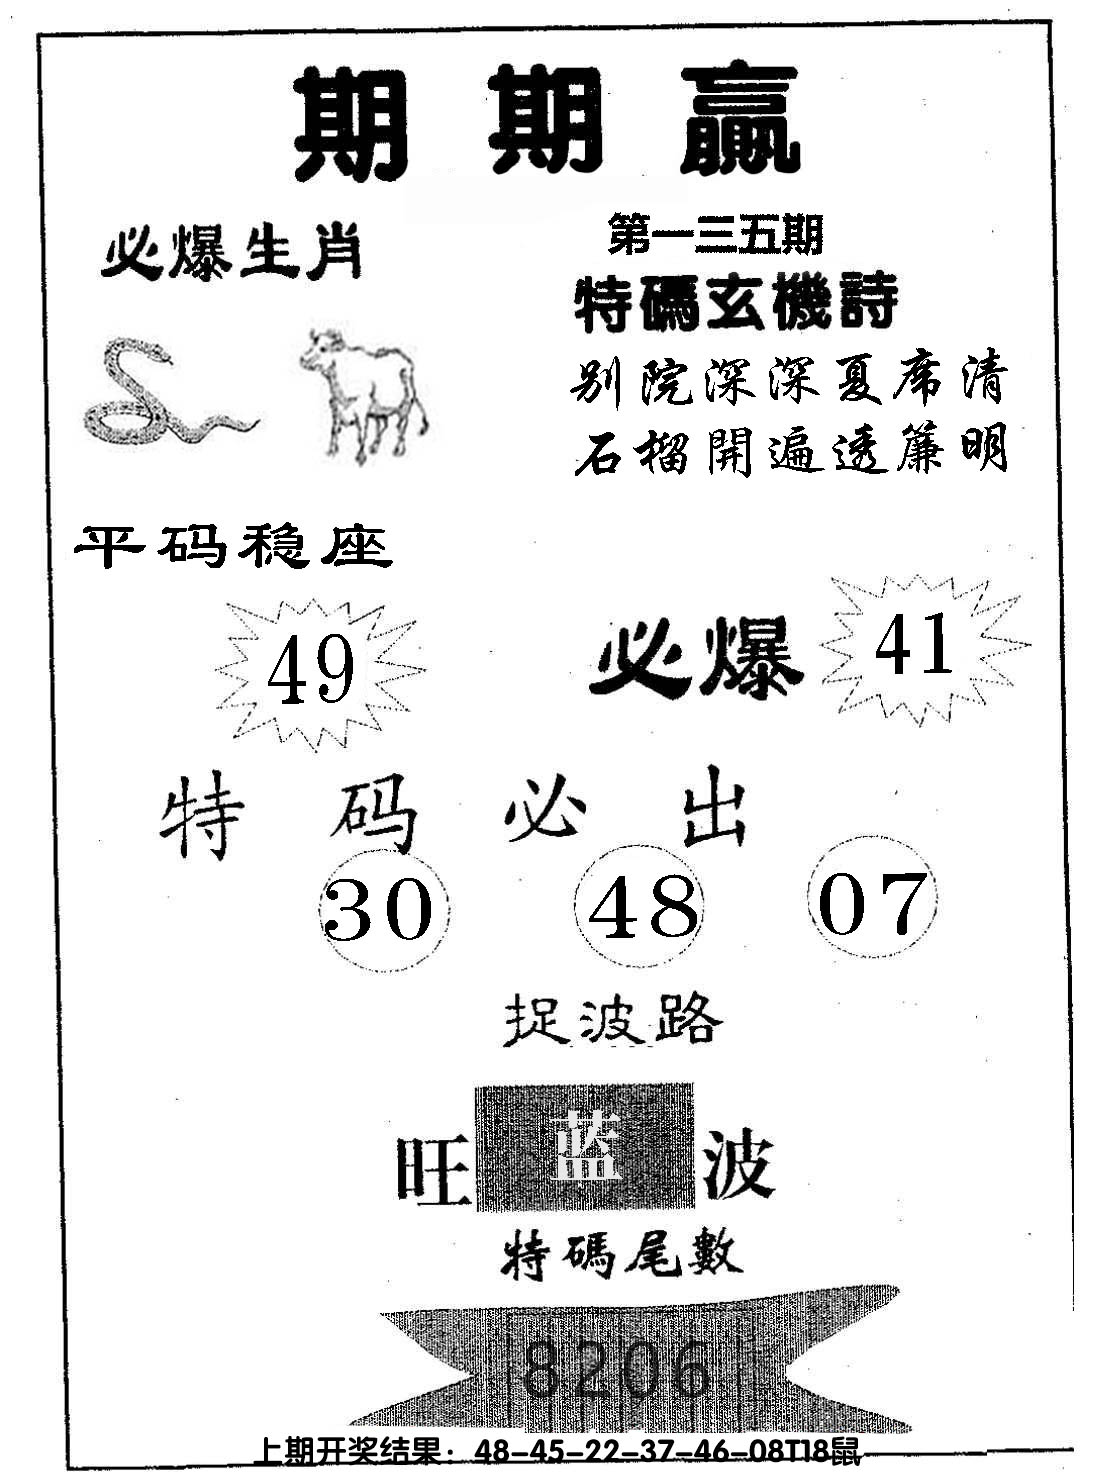 期期赢
第一三五期
必爆生肖
特碼玄機詩
别院深深夏席清
石榴開遍透簾明
平码稳座
49
必爆 41
特码必出
30 48 07
捉波路
旺 蓝 波
特碼尾數
8206
上期开奖结果：48-45-22-37-46-08T18鼠